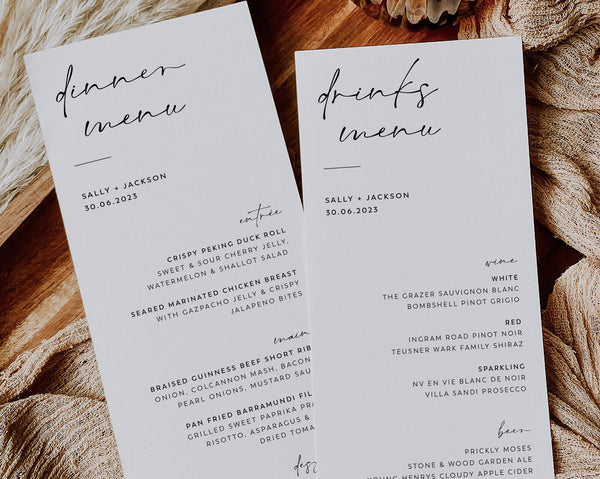 dinner
menu
SALLY + JACKSON
30.06.2023
entrée
CRISPY PEKING DUCK ROLL
SWEET & SOUR CHERRY JELLY,
WATERMELON & SHALLOT SALAD
SEARED MARINATED CHICKEN BREAST
WITH GAZPACHO JELLY & CRISPY
JALAPENO BITES
main
BRAISED GUINNESS BEEF SHORT RIB
ONION, COLCANNON MASH, BACON
PEARL ONIONS, MUSTARD SAU
PAN FRIED BARRAMUNDI FIL
GRILLED SWEET PAPRIKA PRA
RISOTTO, ASPARAGUS &
DRIED TOMA
des
drinks
menu
SALLY + JACKSON
30.06.2023
wine
WHITE
THE GRAZER SAUVIGNON BLANC
BOMBSHELL PINOT GRIGIO
RED
INGRAM ROAD PINOT NOIR
TEUSNER WARK FAMILY SHIRAZ
SPARKLING
NV EN VIE BLANC DE NOIR
VILLA SANDI PROSECCO
beer
PRICKLY MOSES
STONE & WOOD GARDEN ALE
YOUNG HENRYS CLOUDY APPLE CIDER